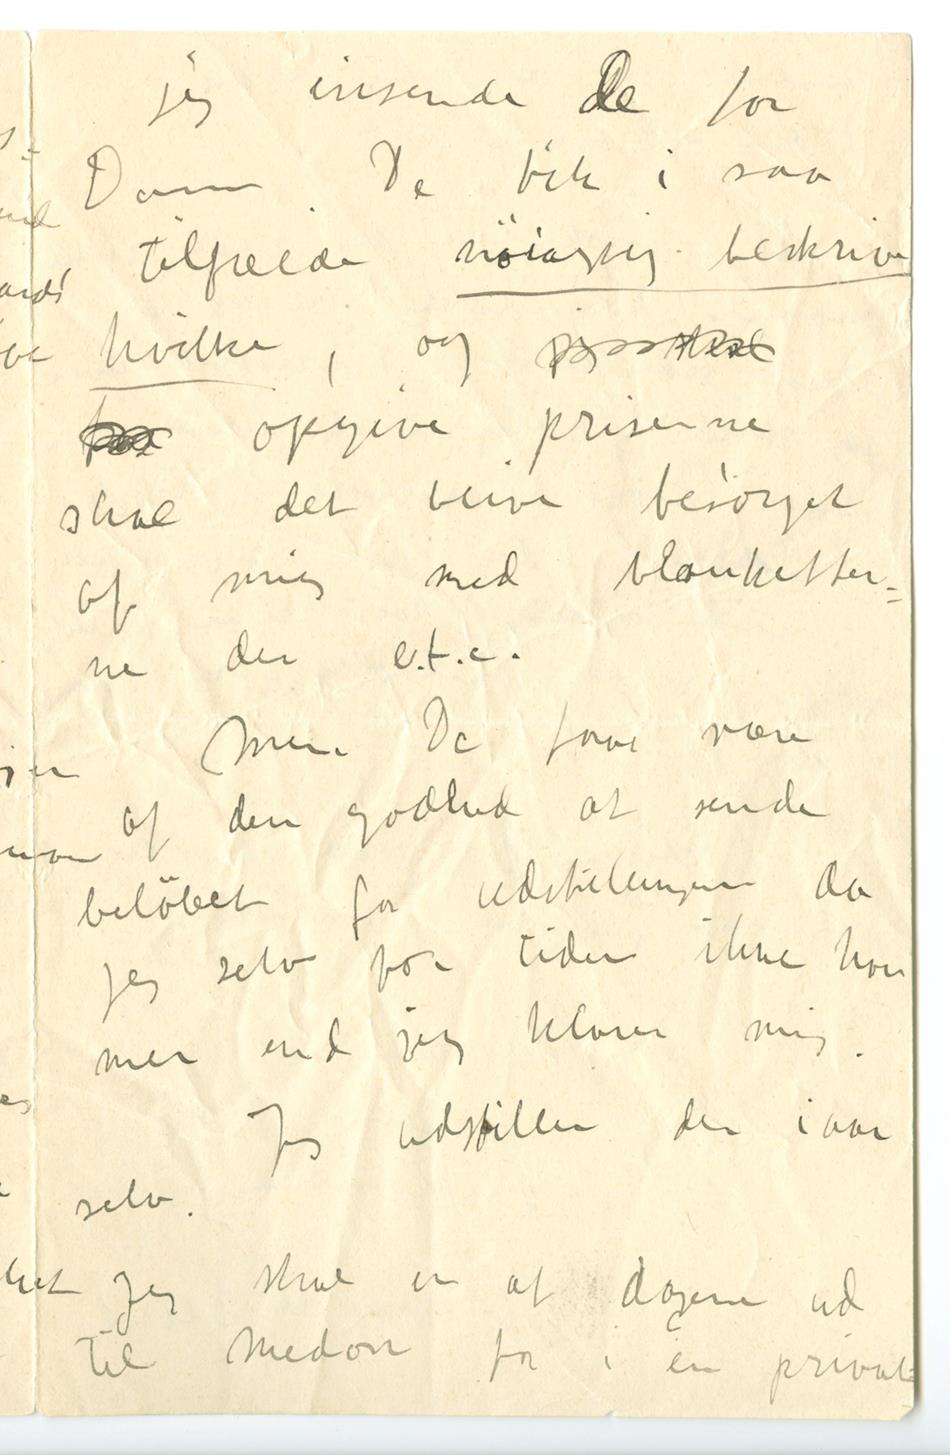 jeg insende De for
Dem De bør i saa
tilfælde nöiagtig beskrive
hvilke, og
opgive priserne
skal det blive besörget
af mig med blanketter=
ne der e.t.c.
Men De faar være
af den godhed at sende
belöbet for udstillingen da
jeg selv for tiden ikke har
mer end jeg klarer mig.
Jeg udstiller der iaar
selv.
Jeg skal en af dagene ud
til Medon for i en privat